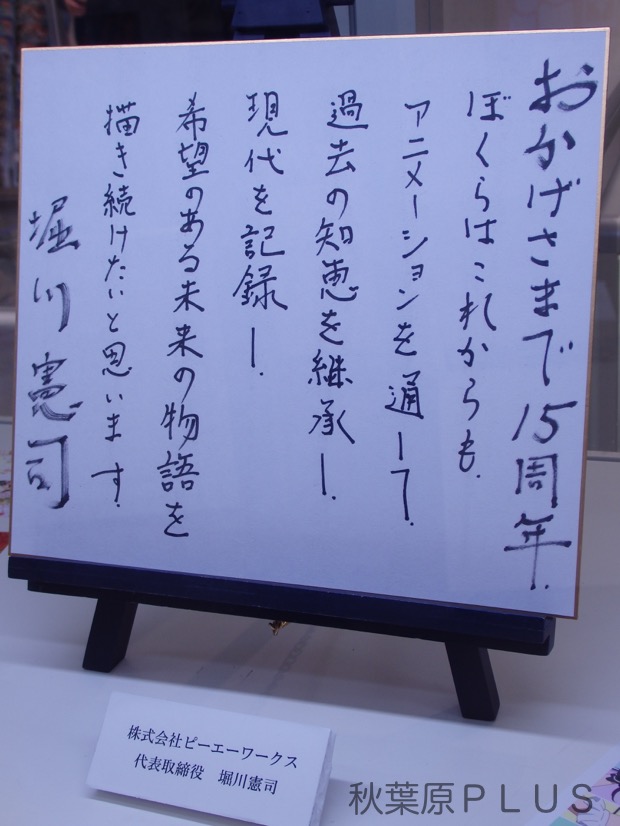 おかげさまで15周年.
ぼくらはこれからも.
アニメーションを通して.
過去の知恵を継承し.
現代を記録し.
希望のある未来の物語を
描き続けたいと思います.
堀川憲司
株式会社ピーエーワークス
代表取締役 堀川憲司
秋葉原PLUS